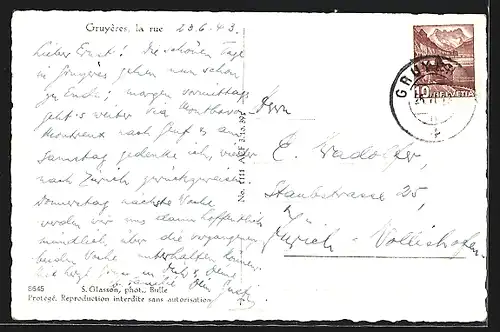 Gruyères, la rue 23.6.43.
Lieber Ernst! Die schönen Tage
in Gruyères gehen nun schon
zu Ende; morgen vormittag
geht's weiter via Montbovon
Montreux nach Genf & am
Samstag gedenke ich, wieder
nach Zürich zurückzureisen.
Donnerstag nächste Woche
werden wir uns dann hoffentlich
mündlich über die vergangenen
beiden Wochen unterhalten können.
8645 S. Glasson, phot., Bulle
Protégé. Reproduction interdite sans autorisation
No. 1111 ACF 3.10.39
HELVETIA
10
GRUYÈRES
Herrn
E. Wadolfer,
Staubstrasse 25,
Zürich-Wollishofen